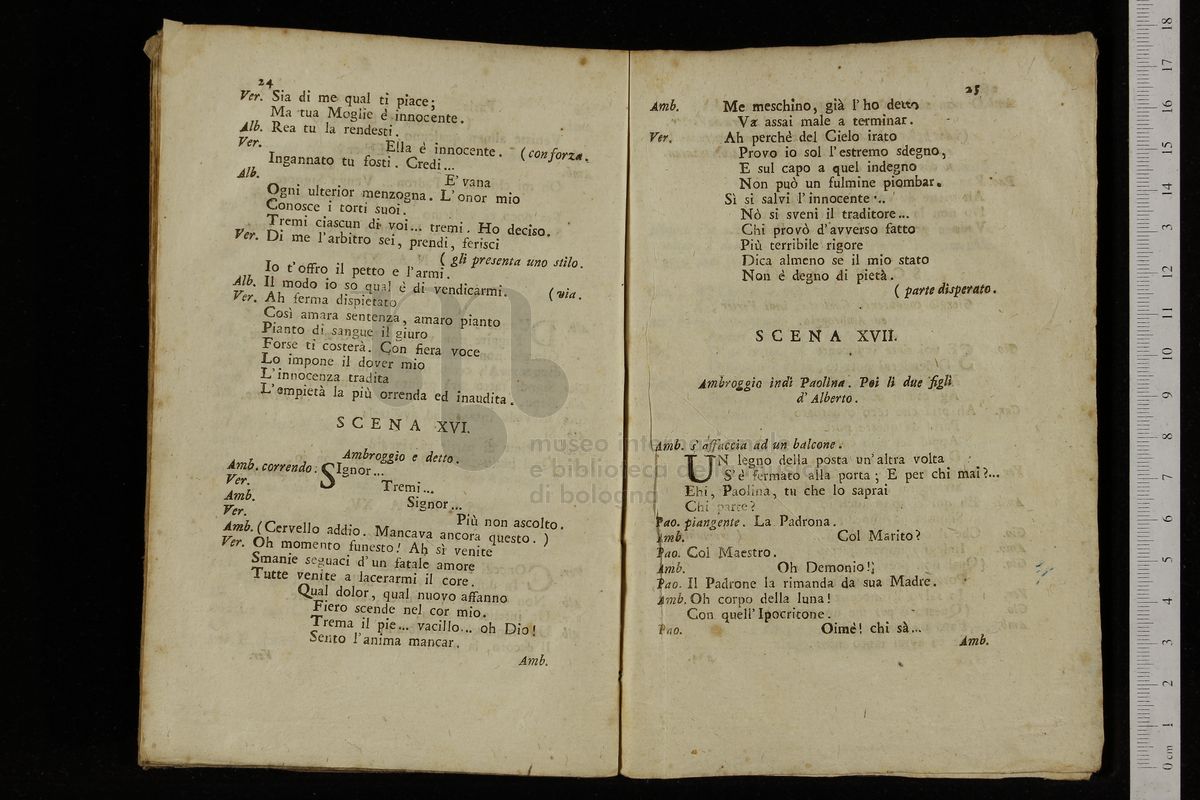 24
Ver. Sia di me qual ti piace;
Ma tua Moglie è innocente.
Alb. Rea tu la rendesti.
Ver. Ella è innocente. (con forza.
Ingannato tu fosti. Credi...
Alb. E' vana
Ogni ulterior menzogna. L'onor mio
Conosce i torti suoi.
Tremi ciascun di voi... tremi. Ho deciso.
Ver. Di me l'arbitro sei, prendi, ferisci
( gli presenta uno stilo.
Io t'offro il petto e l'armi.
Alb. Il modo io so qual è di vendicarmi. (via.
Ver. Ah ferma dispietato
Così amara sentenza, amaro pianto
Pianto di sangue il giuro
Forse ti costerà. Con fiera voce
Lo impone il dover mio
L'innocenza tradita
L'empietà la più orrenda ed inaudita.
SCENA XVI.
Ambroggio e detto.
Amb. correndo. SIgnor...
Ver. Tremi...
Amb. Signor...
Ver. Più non ascolto.
Amb. (Cervello addio. Mancava ancora questo. )
Ver. Oh momento funesto! Ah sì venite
Smanie seguaci d'un fatale amore
Tutte venite a lacerarmi il core.
Qual dolor, qual nuovo affanno
Fiero scende nel cor mio.
Trema il pie... vacillo... oh Dio!
Sento l'anima mancar.
Amb.
25
Amb. Me meschino, già l'ho detto
Va assai male a terminar.
Ver. Ah perchè del Cielo irato
Provo io sol l'estremo sdegno,
E sul capo a quel indegno
Non può un fulmine piombar.
Sì si salvi l'innocente...
Nò si sveni il traditore...
Chi provò d'avverso fatto
Più terribile rigore
Dica almeno se il mio stato
Non è degno di pietà.
( parte disperato.
SCENA XVII.
Ambroggio indi Paolina. Poi li due figli
d'Alberto.
Amb. s'affaccia ad un balcone.
UN legno della posta un'altra volta
S'è fermato alla porta; E per chi mai?...
Ehi, Paolina, tu che lo saprai
Chi parte?
Pao. piangente. La Padrona.
Amb. Col Marito?
Pao. Col Maestro.
Amb. Oh Demonio!
Pao. Il Padrone la rimanda da sua Madre.
Amb. Oh corpo della luna!
Con quell'Ipocritone.
Pao. Oimè! chi sà...
Amb.
museo internazionale
e biblioteca della musica
di bologna
0 cm 1 2 3 4 5 6 7 8 9 10 11 12 13 14 15 16 17 18